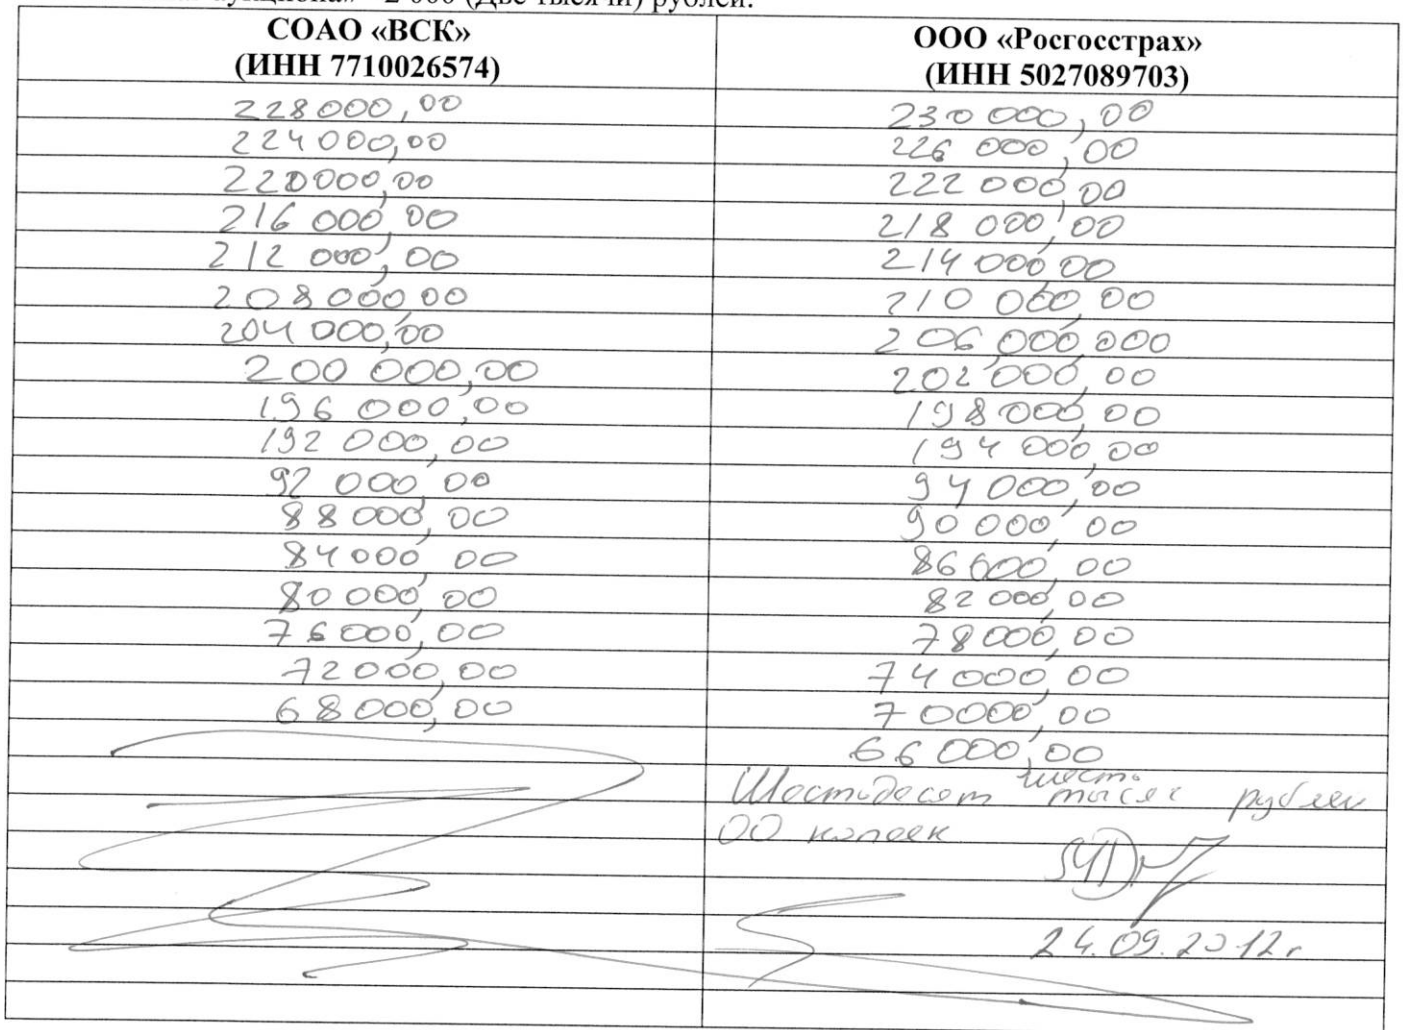 аукциона» - 2 000 (Две тысячи) рублей.
СОАО «ВСК» ООО «Росгосстрах»
(ИНН 7710026574) (ИНН 5027089703)
228000,00 230 000,00
224000,00 226 000,00
220000,00 222 000,00
216 000,00 218 000,00
212 000,00 214 000,00
208000,00 210 000,00
204 000,00 206,000,000
200 000,00 202 000,00
196 000,00 198 000,00
192 000,00 194 000,00
92 000,00 94 000,00
88 000,00 90 000,00
84000,00 86 000,00
80 000,00 82 000,00
76000,00 78000,00
72000,00 74 000,00
68 000,00 70000,00
66 000,00
шесть
Шестьдесят тысяч рублей
00 копеек
24.09.2012г